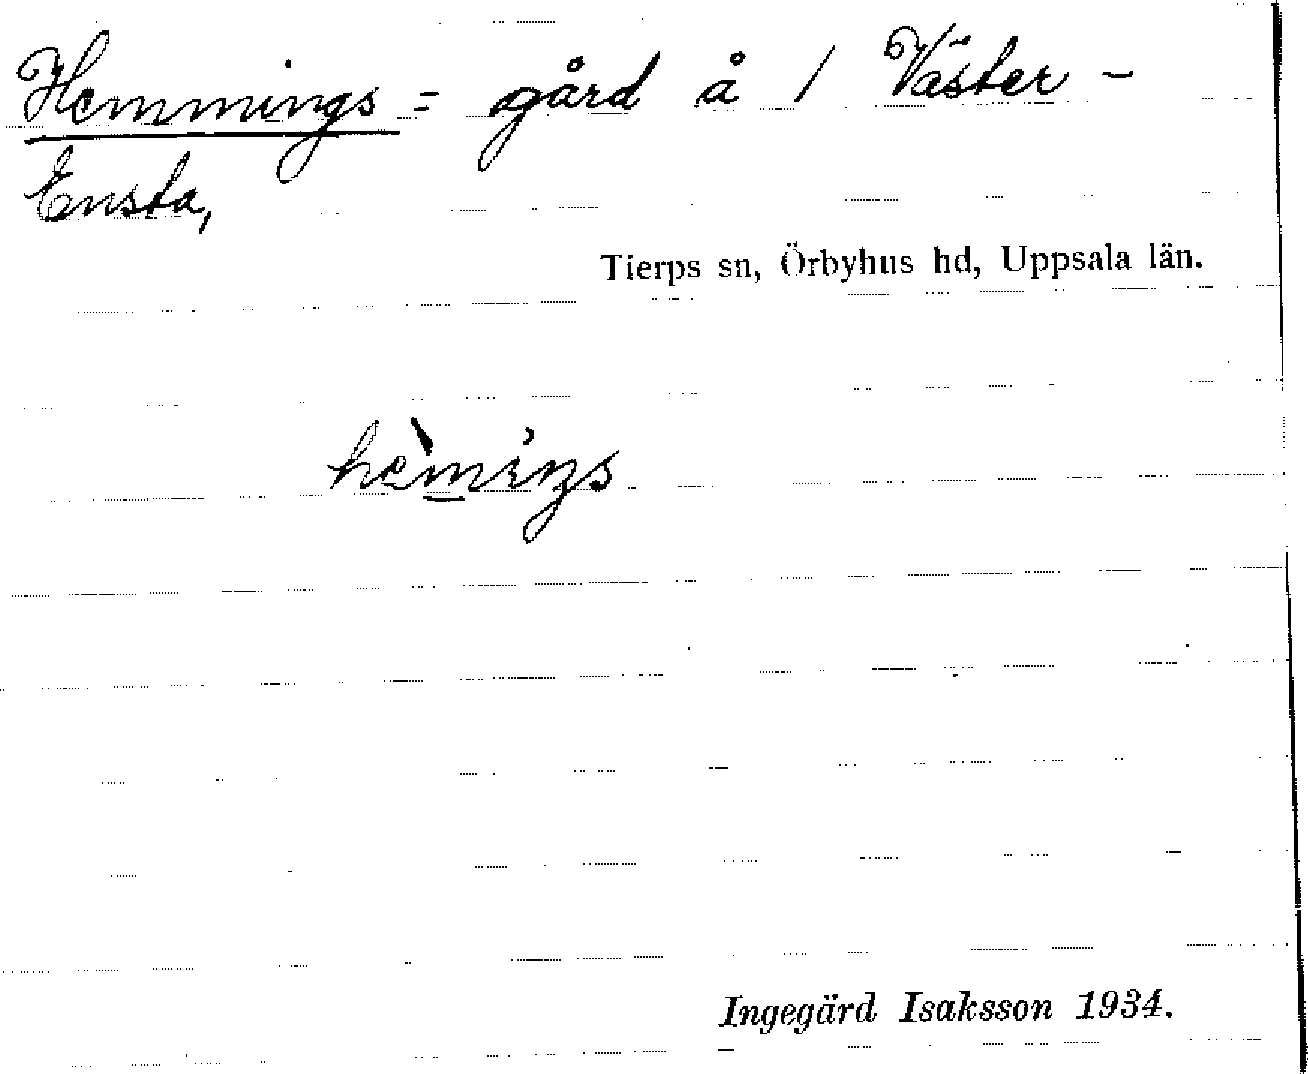 Hemmings = gård å 1 Väster -
Ensta,
Tierps sn, Örbyhus hd, Uppsala län.
hèmıŋs
Ingegärd Isaksson 1934.